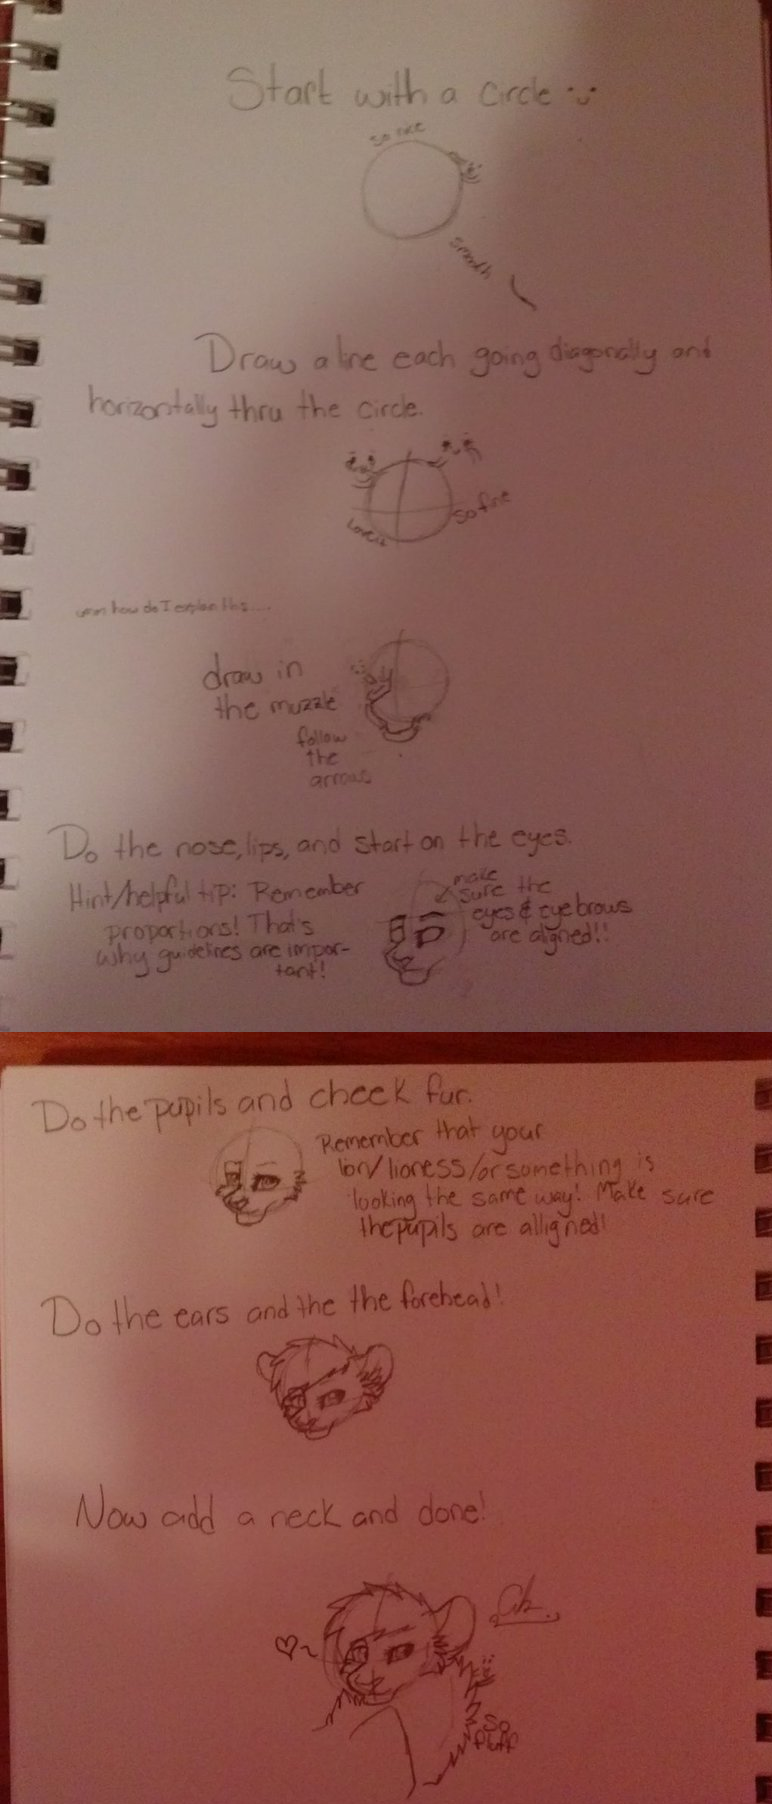 Start with a circle
so nice
smooth
Draw a line each going diagonally and
horizontally thru the circle.
so fine
love it
umm how do I explain this....
draw in
the muzzle
follow
the
arrows
Do the nose, lips, and start on the eyes.
Hint/helpful tip: Remember
proportions! That's
why guidelines are impor-
tant!
make
sure the
eyes & eyebrows
are aligned!!
Do the pupils and cheek fur.
Remember that your
lion/lioness/or something is
looking the same way! Make sure
the pupils are alligned!
Do the ears and the the forehead!
Now add a neck and done!
So
fluff